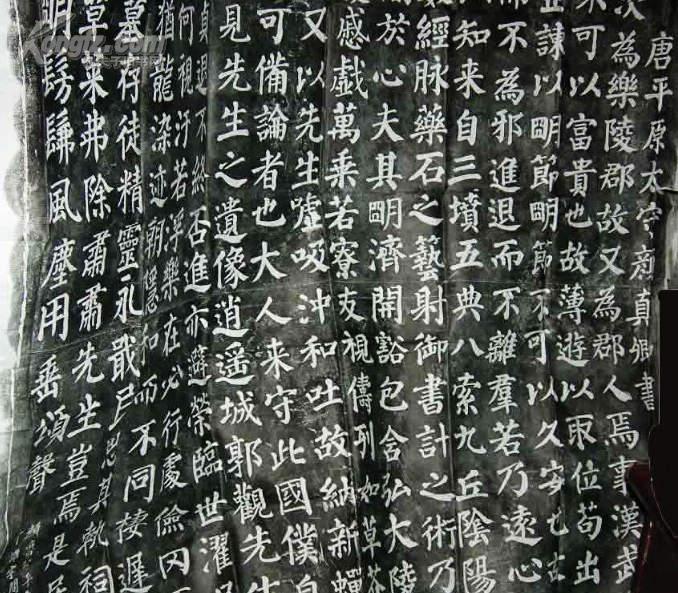 唐平原太守顏真卿書
次為樂陵郡故又為郡人焉事漢武
可以富貴也故薄遊以取位苟出
正諫以明節明節不可以久安也故
而不為邪進退而不離群若乃遠心
知来自三墳五典八索九丘陰陽
經脉藥石之藝射御書計之術乃
於心夫其明濟開豁包含弘大陵
慼戲萬乘若寮友視儔列如草芥
又以先生噓吸沖和吐故納新蟬
可備論者也大人来守此國僕自
見先生之遺像逍遥城郭觀先生
真退不終否進亦避榮臨世濯
何視汙若浮樂在必行處儉冈
猶龍染迹朝隱和而不同棲遲
墓存徒精靈永戢戸思其軌祠
草莱弗除肅肅先生豈焉是居
明髣髴風塵用垂頌聲